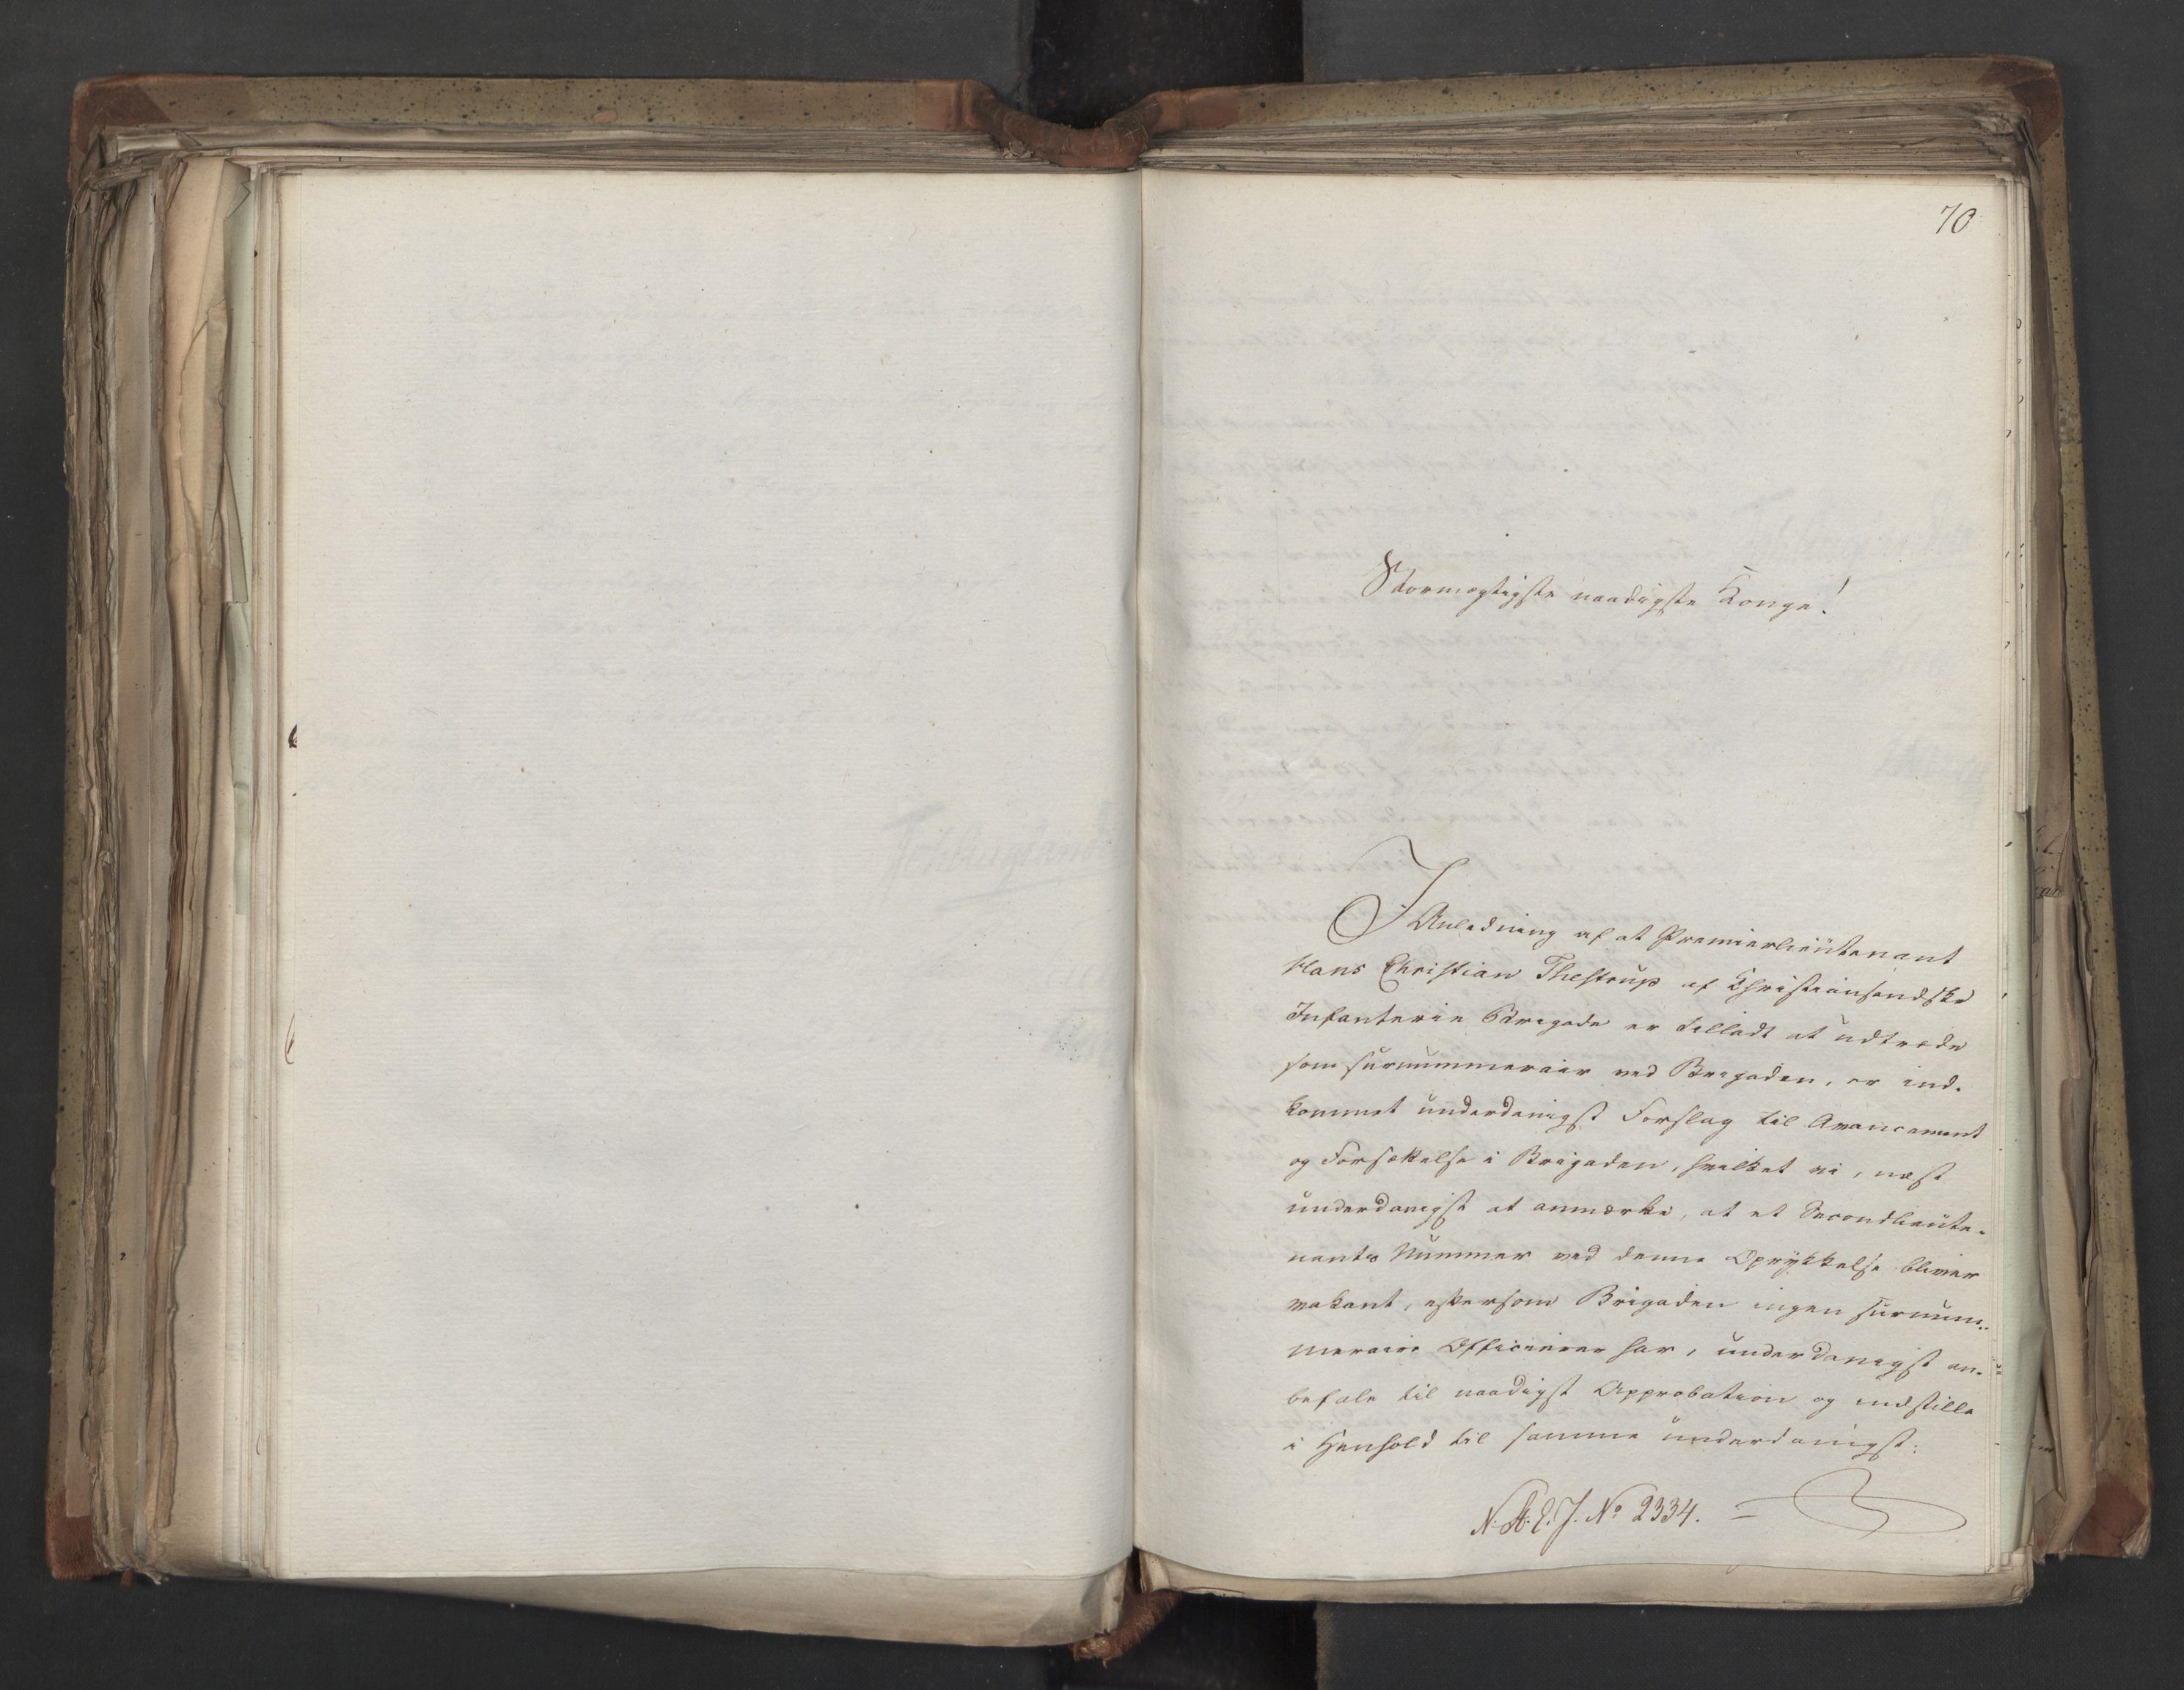 70
Stormægtigste naadigste Konge!
I Anledning af at Premierlieutenant
Hans Christian Thestrup af Christiansandske
Infanterie Brigade er tilladt at udtræde
som surnummerair ved Brigaden, er ind-
kommet underdanigst Forslag til Avancement
og Forsættelse i Brigaden, hvilket vi, næst
underdanigst at anmærke, at et Secondlieute-
nants Nummer ved denne Oprykkelse bliver
vakant, eftersom Brigaden ingen surnum-
meraire Officierer har, underdanigst an-
befale til naadigst Approbation og indstille
i Henhold til samme underdanigst:
N. A. E. J. No 2334.